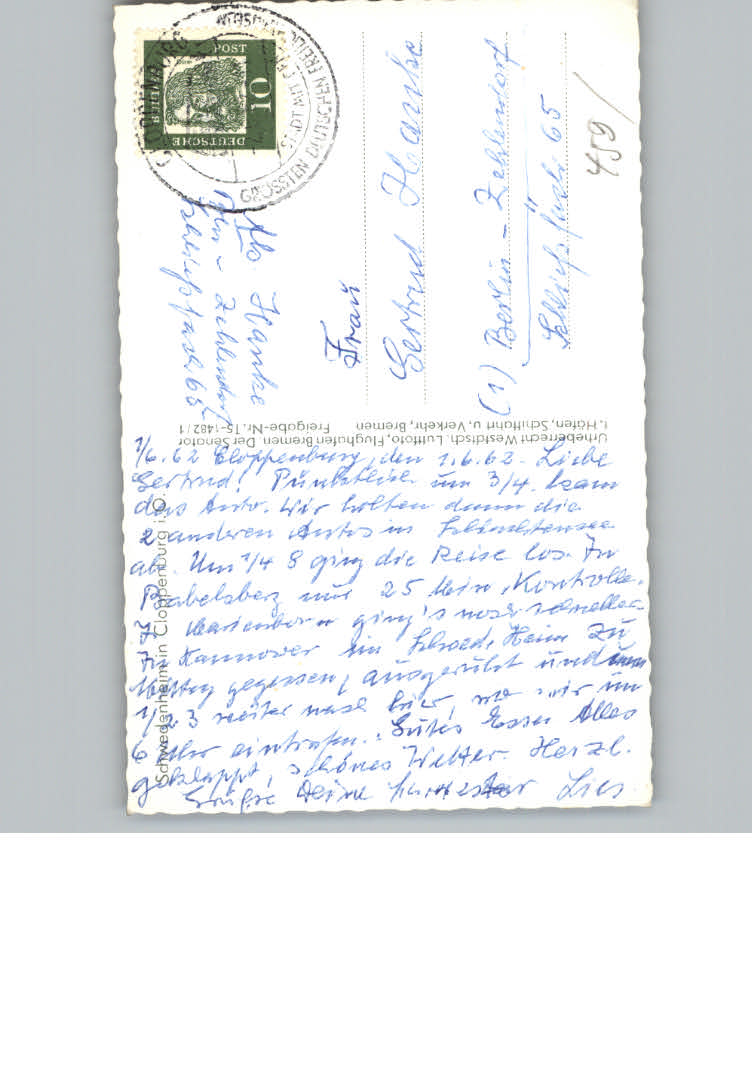 DEUTSCHE
BUNDESPOST
10
CLOPPENBURG
STADT MIT
GRÖSSTEN DEUTSCHEN FREILICHTMUSEUM
Abs. Hanke
Bln - Zehlendorf
Schließfach 65
Frau
Gertrud Hanke
(1) Berlin - Zehlendorf
Schließfach 65
459/
Urheberrecht Westdtsch. Luftfoto, Flughafen Bremen. Der Senator
f. Häfen, Schiffahrt u. Verkehr, Bremen Freigabe-Nr. T5-1482/1
Schwedenheim in Cloppenburg i. O.
1/6.62 Cloppenburg, den 1.6.62. Liebe
Gertrud! Pünktlich um 3/4. kam
das Auto. Wir holten dann die
2 anderen Autos in Schlachtensee
ab. Um 1/4 8 ging die Reise los. In
Babelsberg nur 25 Min. Kontrolle.
In Marienborn ging's noch schneller
In Hannover im Schwed. Heim zu
Mittag gegessen, ausgeruht und um
1/2 3 weiter nach hier, wo wir um
6 Uhr eintrafen. Gutes Essen Alles
geklappt, schönes Wetter. Herzl.
Grüße Deine Schwester Lies